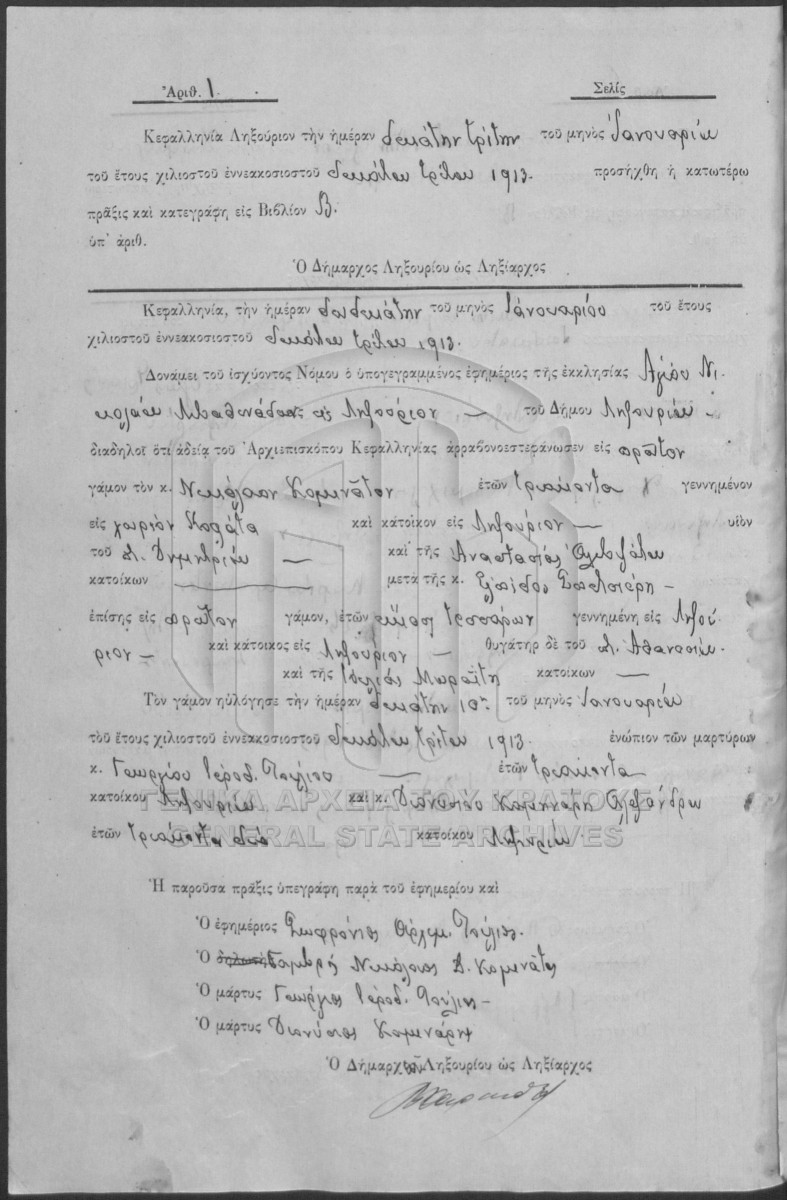 Ἀριθ. 1.
Σελίς
Κεφαλληνία Ληξούριον τὴν ἡμέραν δεκάτην τρίτην τοῦ μηνὸς Ἰανουαρίου
τοῦ ἔτους χιλιοστοῦ ἐννεακοσιοστοῦ δεκάτου τρίτου 1913. προσήχθη ἡ κατωτέρω
πρᾶξις καὶ κατεγράφη εἰς Βιβλίον Β.
ὑπ' ἀριθ.
Ὁ Δήμαρχος Ληξουρίου ὡς Ληξίαρχος
Κεφαλληνία, τὴν ἡμέραν δωδεκάτην τοῦ μηνὸς Ἰανουαρίου τοῦ ἔτους
χιλιοστοῦ ἐννεακοσιοστοῦ δεκάτου τρίτου 1913.
Δυνάμει τοῦ ἰσχύοντος Νόμου ὁ ὑπογεγραμμένος ἐφημέριος τῆς ἐκκλησίας Ἁγίου Νι-
κολάου εἰς Ληξούριον — τοῦ Δήμου Ληξουρίου -
διαδηλοῖ ὅτι ἀδείᾳ τοῦ Ἀρχιεπισκόπου Κεφαλληνίας ἀρραβωνοεστεφάνωσεν εἰς πρῶτον
γάμον τὸν κ. Νικόλαον Κομινᾶτον ἐτῶν τριάκοντα γεννημένον
εἰς χωρίον καὶ κάτοικον εἰς Ληξούριον — υἱὸν
τοῦ κ. Δημητρίου — καὶ τῆς Ἀναστασίας
κατοίκων — μετὰ τῆς κ. Ἐλπίδος
ἐπίσης εἰς πρῶτον γάμον, ἐτῶν εἴκοσι τεσσάρων γεννημένη εἰς Ληξού-
ριον - καὶ κάτοικος εἰς Ληξούριον - θυγάτηρ δὲ τοῦ κ. Ἀθανασίου
καὶ τῆς Μωραΐτη κατοίκων —
Τὸν γάμον ηὐλόγησε τὴν ἡμέραν δεκάτην 10ην τοῦ μηνὸς Ἰανουαρίου
τοῦ ἔτους χιλιοστοῦ ἐννεακοσιοστοῦ δεκάτου τρίτου 1913. ἐνώπιον τῶν μαρτύρων
κ. Γεωργίου Ἱεροδ. — ἐτῶν τριάκοντα
κατοίκου Ληξουρίου καὶ κ. Διονυσίου Ἀλεξάνδρου
ΓΕΝΙΚΑ ΑΡΧΕΙΑ ΤΟΥ ΚΡΑΤΟΥΣ
GENERAL STATE ARCHIVES
ἐτῶν τριάκοντα δύο κατοίκου Ληξουρίου
Ἡ παροῦσα πρᾶξις ὑπεγράφη παρὰ τοῦ ἐφημερίου καὶ
Ὁ ἐφημέριος Σωφρόνιος
Ὁ Γαμβρὸς Νικόλαος Δ. Κομινᾶτος
Ὁ μάρτυς Γεώργιος Ἱεροδ.
Ὁ μάρτυς Διονύσιος
Ὁ Δήμαρχος Ληξουρίου ὡς Ληξίαρχος